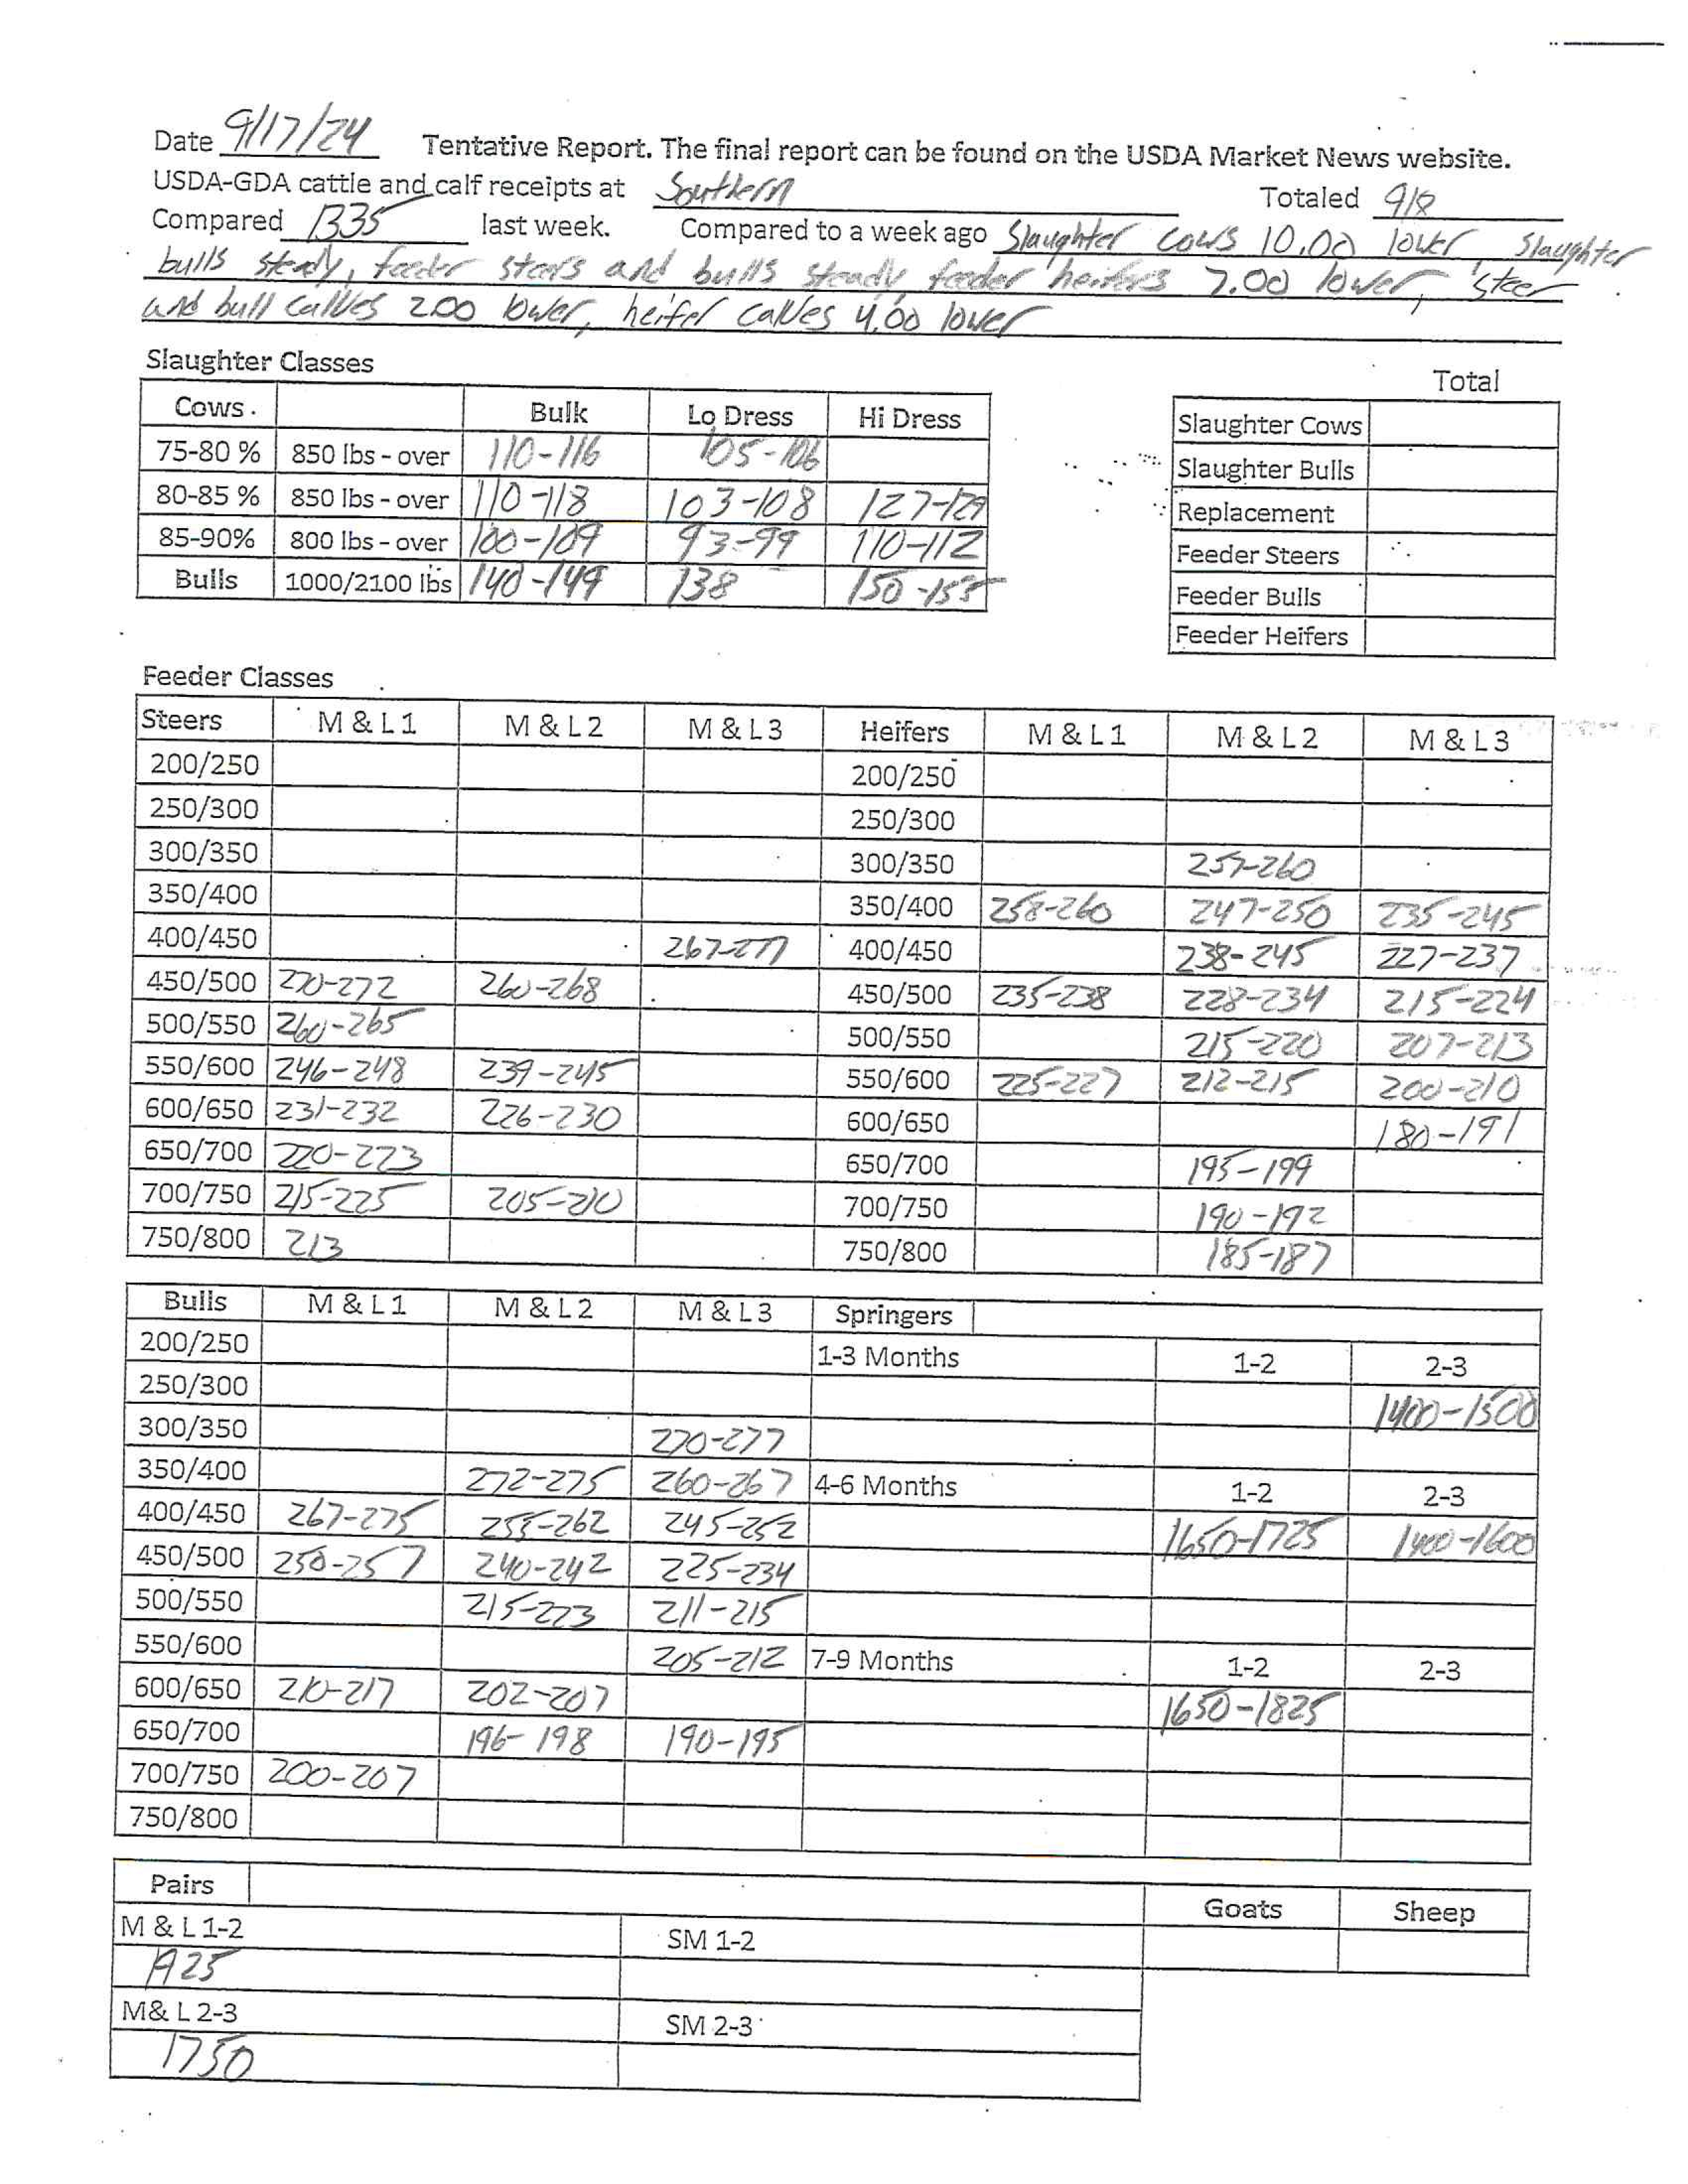 Date 9/17/24 Tentative Report. The final report can be found on the USDA Market News website.
USDA-GDA cattle and calf receipts at Southern Totaled 918
Compared 1335 last week. Compared to a week ago Slaughter cows 10.00 lower, Slaughter
bulls steady, feeder steers and bulls steady, feeder heifers 7.00 lower, steer
and bull callves 2.00 lower, heifer calves 4.00 lower
Slaughter Classes
Total
Cows. Bulk Lo Dress Hi Dress
75-80 % 850 lbs - over 110-116 105-106
80-85 % 850 lbs - over 110-118 103-108 127-129
85-90% 800 lbs - over 100-109 93-99 110-112
Bulls 1000/2100 lbs 140-149 138 150-155
Slaughter Cows
Slaughter Bulls
Replacement
Feeder Steers
Feeder Bulls
Feeder Heifers
Feeder Classes
Steers M & L 1 M & L 2 M & L 3 Heifers M & L 1 M & L 2 M & L 3
200/250 200/250
250/300 250/300
300/350 300/350 257-260
350/400 350/400 258-260 247-250 235-245
400/450 267-277 400/450 238-245 227-237
450/500 270-272 260-268 450/500 235-238 228-234 215-224
500/550 260-265 500/550 215-220 207-213
550/600 246-248 239-245 550/600 225-227 212-215 200-210
600/650 231-232 226-230 600/650 180-191
650/700 220-223 650/700 195-199
700/750 215-225 205-210 700/750 190-192
750/800 213 750/800 185-187
Bulls M & L 1 M & L 2 M & L 3 Springers
200/250 1-3 Months 1-2 2-3
250/300 1400-1500
300/350 270-277
350/400 272-275 260-267 4-6 Months 1-2 2-3
400/450 267-275 255-262 245-252 1650-1725 1400-1600
450/500 250-257 240-242 225-234
500/550 215-223 211-215
550/600 205-212 7-9 Months 1-2 2-3
600/650 210-217 202-207 1650-1825
650/700 196-198 190-195
700/750 200-207
750/800
Pairs Goats Sheep
M & L 1-2 SM 1-2
1925
M& L 2-3 SM 2-3
1750